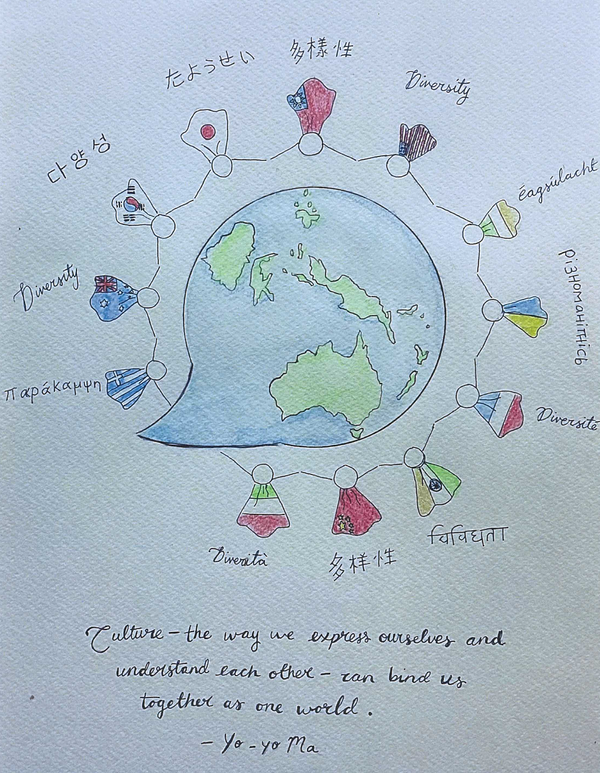 たようせい
多樣性
Diversity
다양성
éagsúlacht
Diversity
різноманітнісь
παράκαμψη
Diversité
विविधता
Diversità
多样性
Culture – the way we express ourselves and
understand each other – can bind us
together as one world.
– Yo-yo Ma